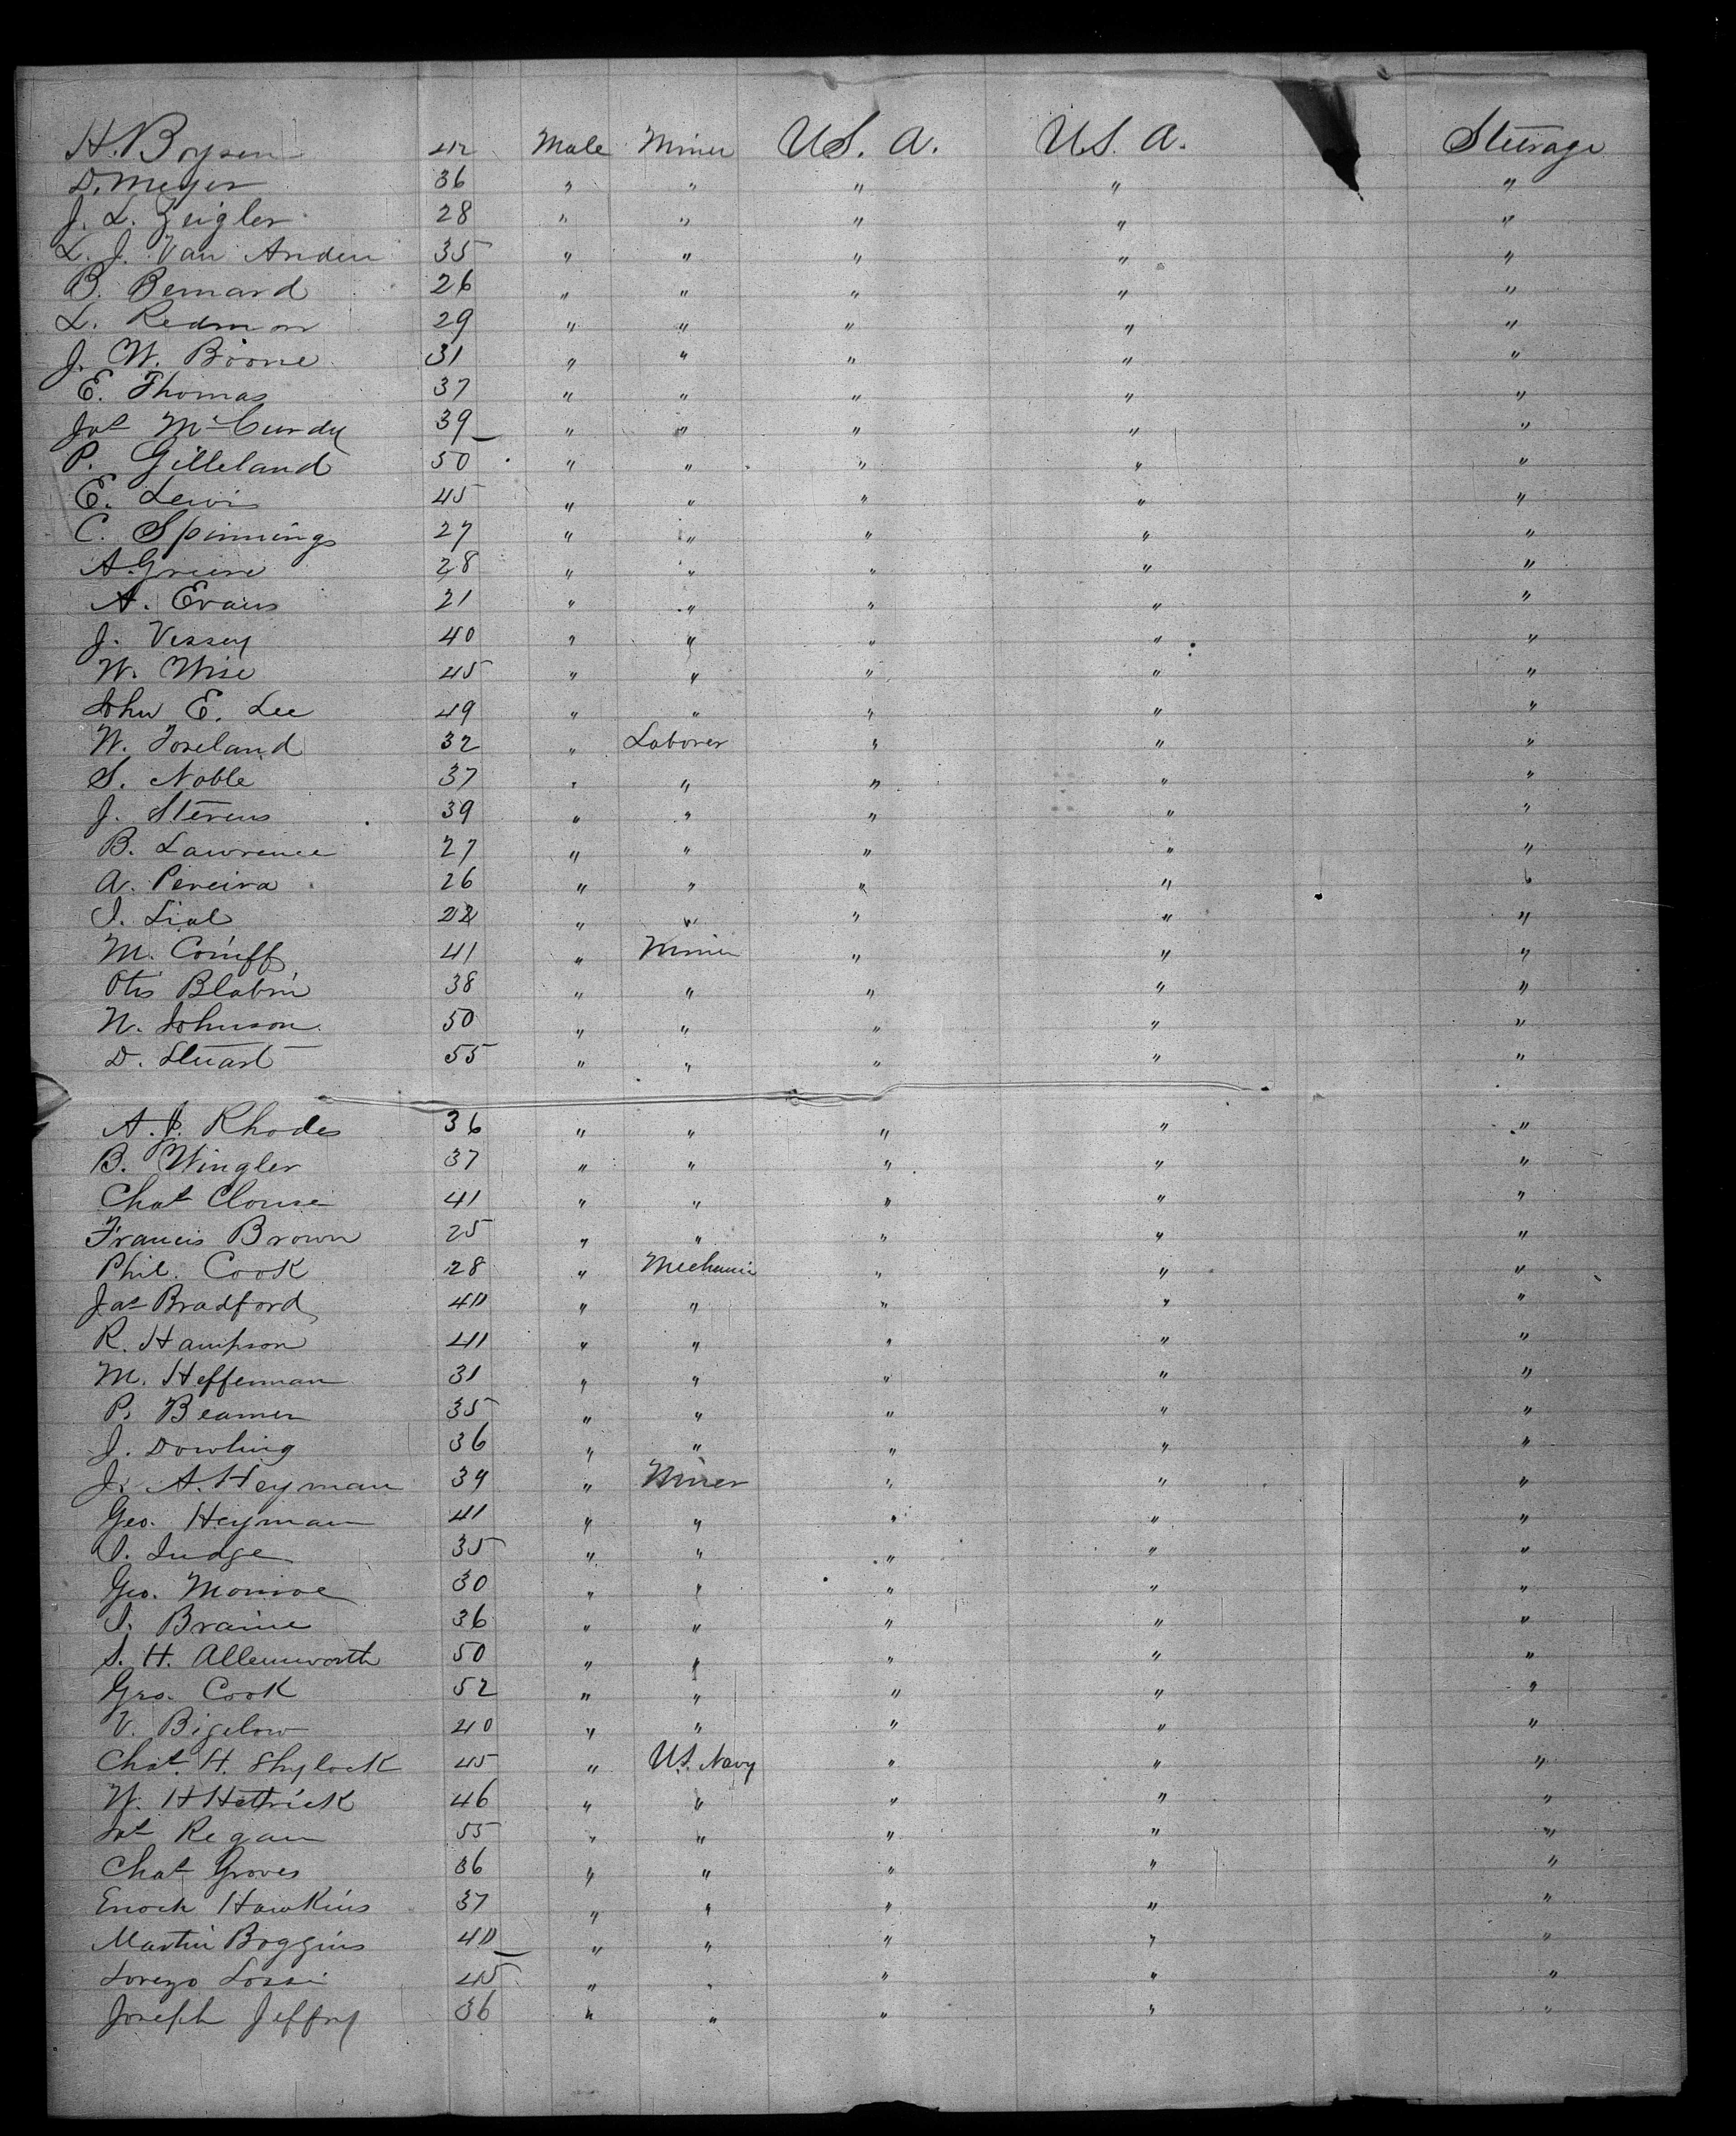 H. Boysen 42 Male Miner U.S. A. U.S. A. Steerage
D. Meyer 36 " " " " "
J. L. Zeigler 28 " " " " "
L. J. Van Anden 35 " " " " "
B. Bernard 26 " " " " "
L. Redmon 29 " " " " "
J. W. Boone 31 " " " " "
E. Thomas 37 " " " " "
Jas McCurdy 39 " " " " "
P. Gilleland 50 " " " " "
E. Lewis 45 " " " " "
C. Spinnings 27 " " " " "
A. Griere 28 " " " " "
A. Evans 21 " " " " "
J. Vessey 40 " " " " "
W. Wise 45 " " " " "
John E. Lee 49 " " " " "
W. Foreland 32 " Laborer " " "
S. Noble 37 " " " " "
J. Stevens 39 " " " " "
B. Lawrence 27 " " " " "
A. Pereira 26 " " " " "
J. Lial 22 " " " " "
M. Coniff 41 " Miner " " "
Otis Blabin 38 " " " " "
N. Johnson 50 " " " " "
D. Stuart 55 " " " " "
A. J. Rhodes 36 " " " " "
B. Wingler 37 " " " " "
Chas Clouse 41 " " " " "
Francis Brown 25 " " " " "
Phil. Cook 28 " Mechanic " " "
Jas Bradford 40 " " " " "
R. Hampson 41 " " " " "
M. Heffernan 31 " " " " "
P. Beamer 35 " " " " "
J. Dowling 36 " " " " "
J. A. Heyman 39 " Miner " " "
Geo. Heyman 41 " " " " "
J. Judge 35 " " " " "
Geo. Monroe 30 " " " " "
J. Braine 36 " " " " "
S. H. Allemworth 50 " " " " "
Geo. Cook 52 " " " " "
V. Bigelow 40 " " " " "
Chas. H. Shylock 45 " U.S. Navy " " "
W. H Hettrick 46 " " " " "
Jas Regan 55 " " " " "
Chas Groves 36 " " " " "
Enoch Hawkins 37 " " " " "
Martin Boggins 40 " " " " "
Lorezo Lossi 45 " " " " "
Joseph Jeffry 36 " " " " "